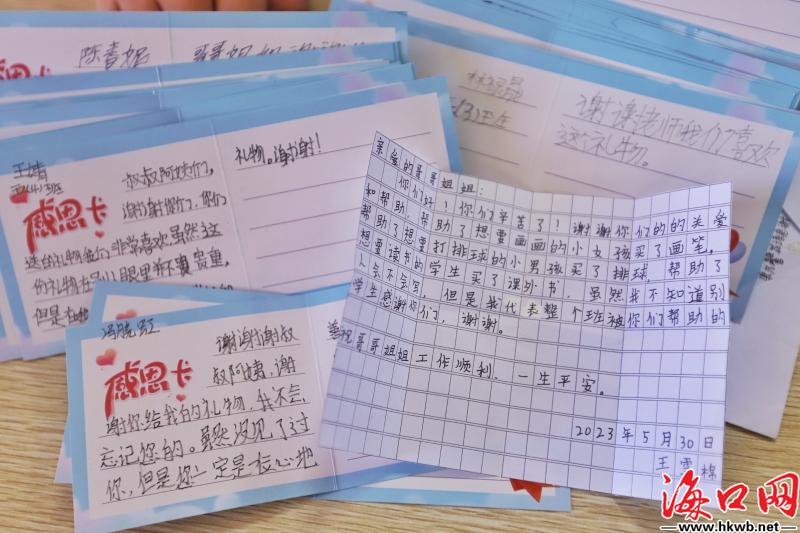 陈喜妮
哥哥姐姐谢谢
谢谢老师我们喜欢
这礼物。
王婧
感恩卡
叔叔阿姨们,
谢谢你们了,你们
送的礼物我们非常喜欢虽然这
份礼物在别人眼里并不贵重,
但是在她
礼物。谢谢!
冯晓虹
感恩卡
谢谢谢叔
叔阿姨,谢
谢你给我的礼物,我不会
忘记你的。虽然没见了过
你,但是你一定是在心地
亲爱的哥哥姐姐:
你们好!你们辛苦了!谢谢你们的的关爱
和帮助,帮助了想要画画的小女孩买了画笔,
帮助了想要打排球的小男孩买了排球,帮助了
想要读书的学生买了课外书,虽然我不知道别
人会不会写,但是我代表整个班被你们帮助的
学生感谢你们,谢谢。
祝哥哥姐姐工作顺利,一生平安。
2023年5月30日
王雪棉
海口网
www.hkwb.net